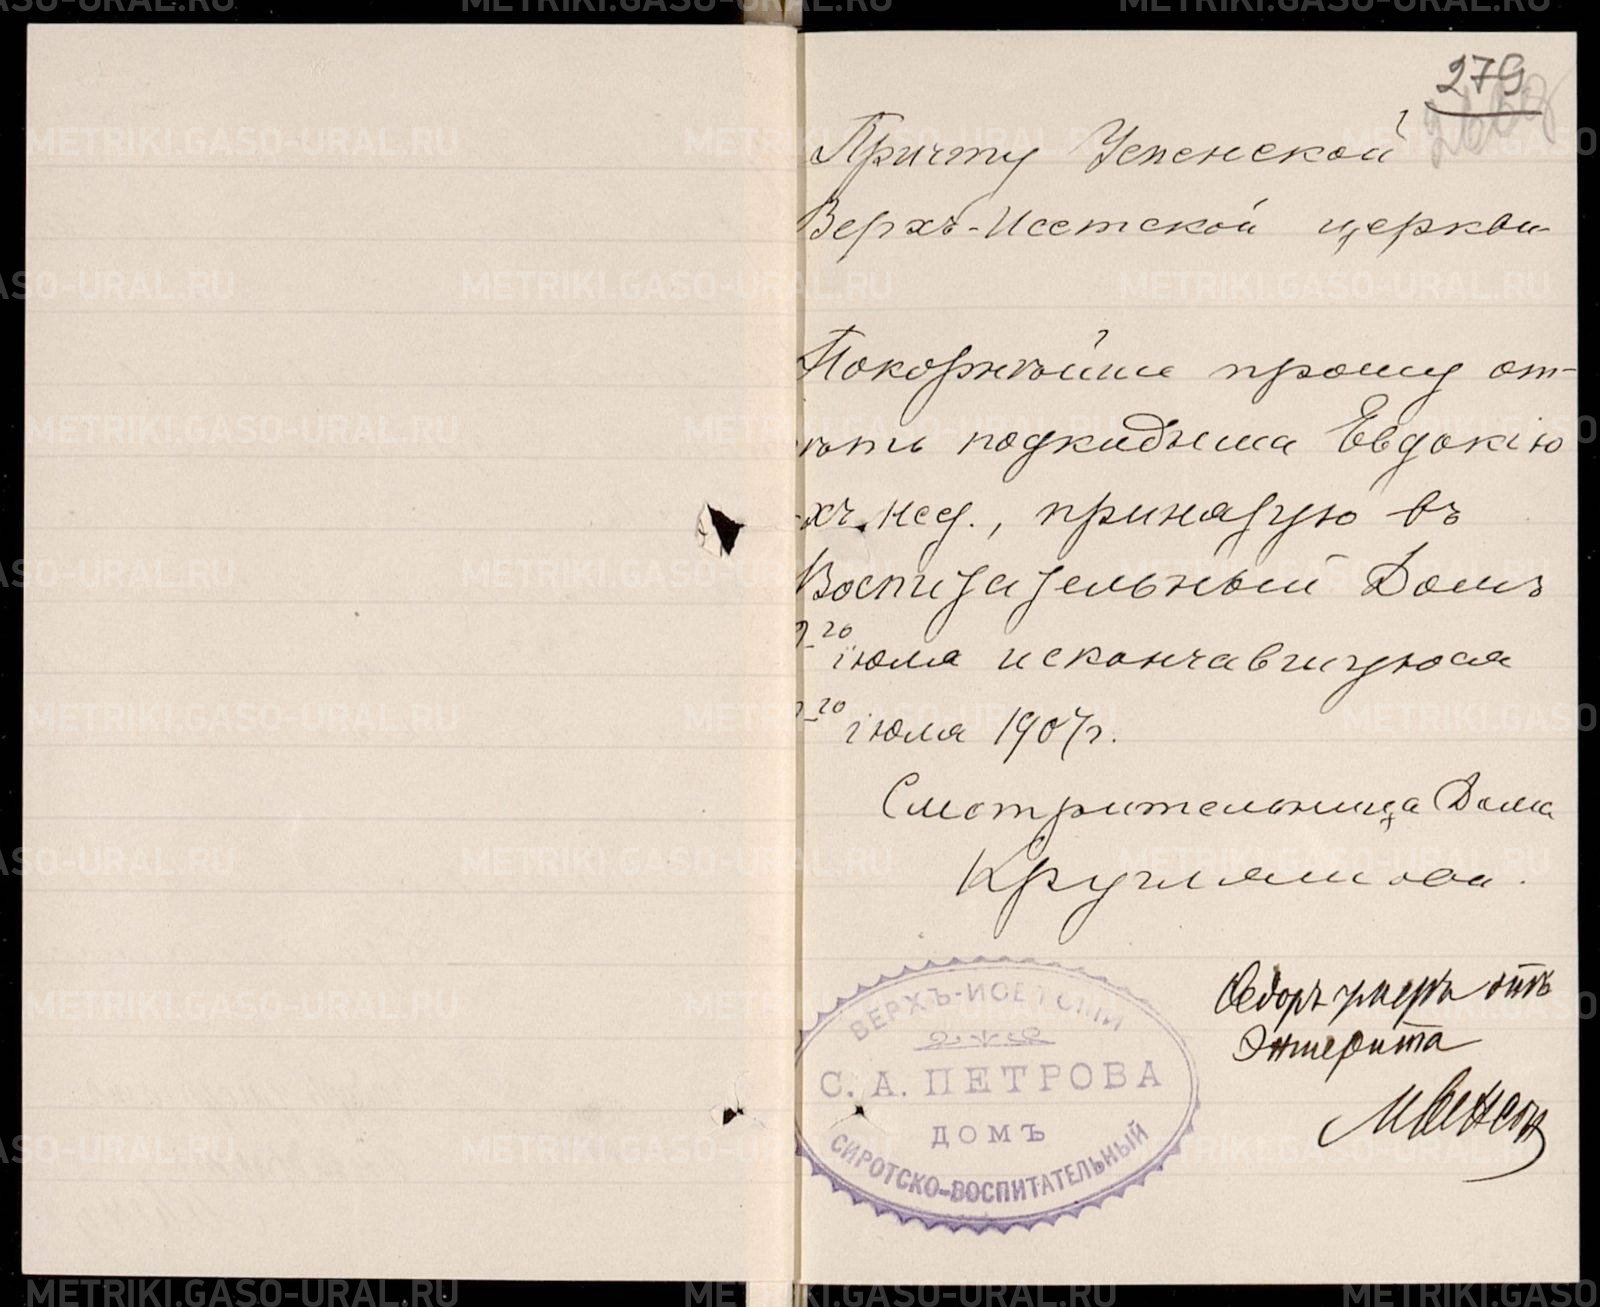 279
Причту Успенской
Верхъ-Исетской церкви
Покорнѣйше прошу от-
пѣть подкидыша Евдокію
-хъ нед., принятую въ
Воспитательный Домъ
20 іюля и скончавшуюся
20 іюля 1907 г.
Смотрительница Дома
Круглашова.
ВЕРХЪ-ИСЕТСКІЙ
С. А. ПЕТРОВА
ДОМЪ
СИРОТСКО-ВОСПИТАТЕЛЬНЫЙ
Ѳедоръ умеръ отъ
Энтерита
METRIKI.GASO-URAL.RU